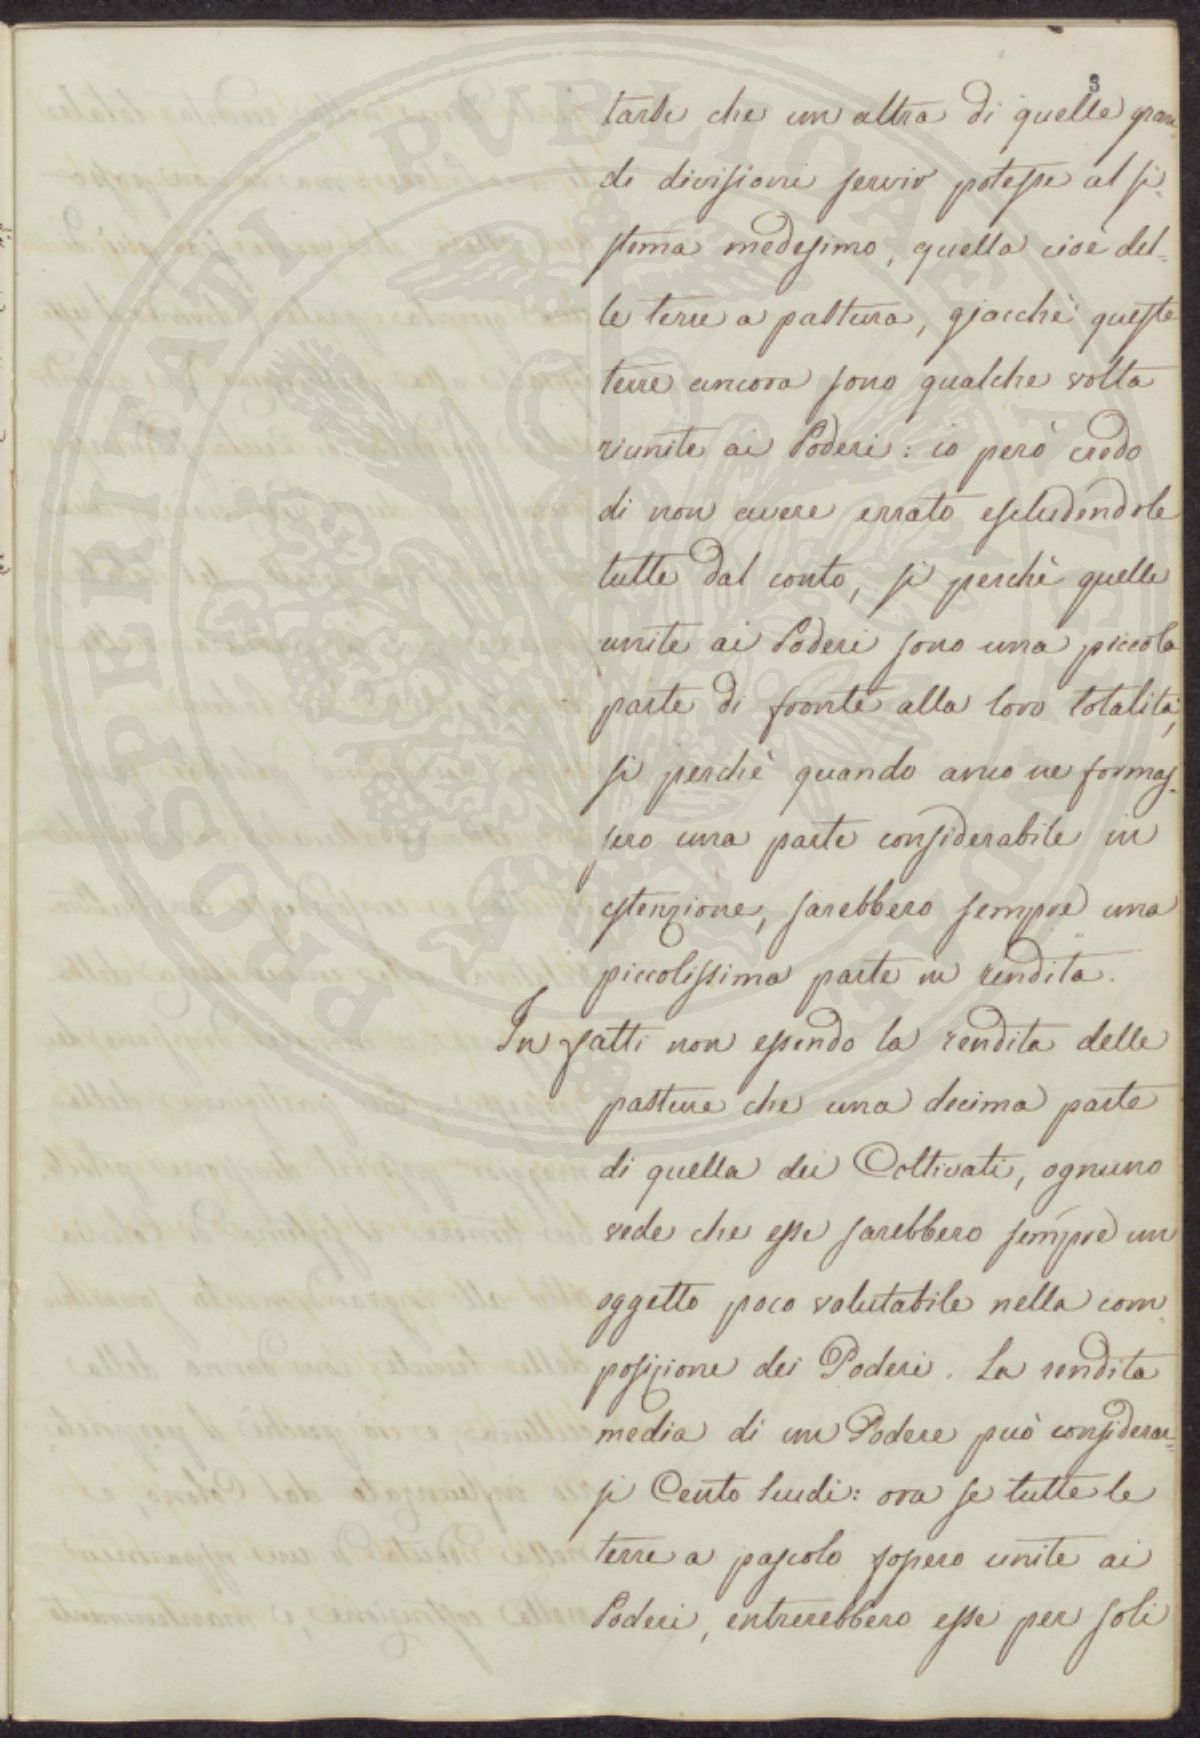 3
tarsi che un altra di quelle gran-
di divisioni servir potesse al si-
stema medesimo, quella cioè del-
le terre a pastura, giacchè queste
terre ancora sono qualche volta
riunite ai Poderi: io però credo
di non avere errato escludendole
tutte dal conto, sì perchè quelle
unite ai Poderi sono una piccola
parte di fronte alla loro totalità,
sì perchè quando anco ne formas-
sero una parte considerabile in
estenzione, sarebbero sempre una
piccolissima parte in rendita.
In fatti non essendo la rendita delle
pasture che una decima parte
di quella dei Coltivati, ognuno
vede che esse sarebbero sempre un
oggetto poco valutabile nella com-
posizione dei Poderi. La rendita
media di un Podere può considerar-
si Cento Scudi: ora se tutte le
terre a pascolo fossero unite ai
Poderi, entrerebbero esse per soli
PROSPERITATI PVBLICAE